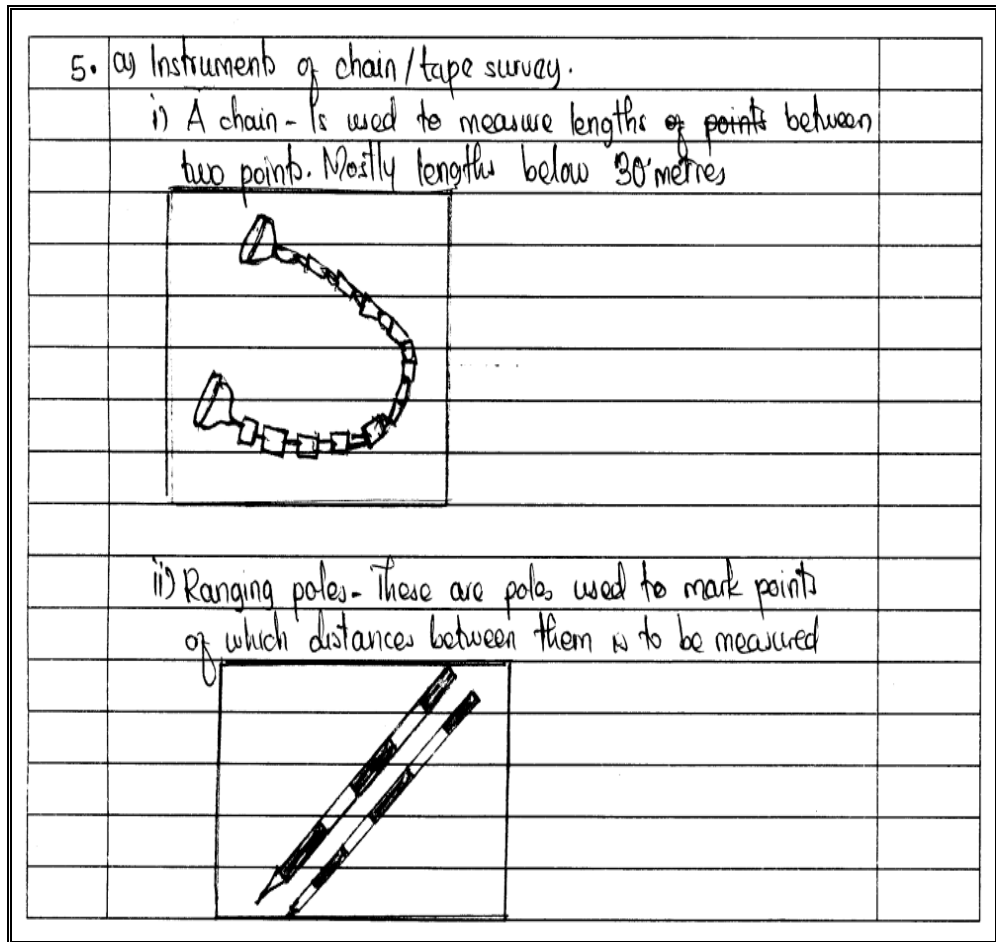 5. a) Instruments of chain/tape survey.
i) A chain - Is used to measure lengths of points between
two points. Mostly lengths below 30 metres
ii) Ranging poles - These are poles used to mark points
of which distances between them is to be measured